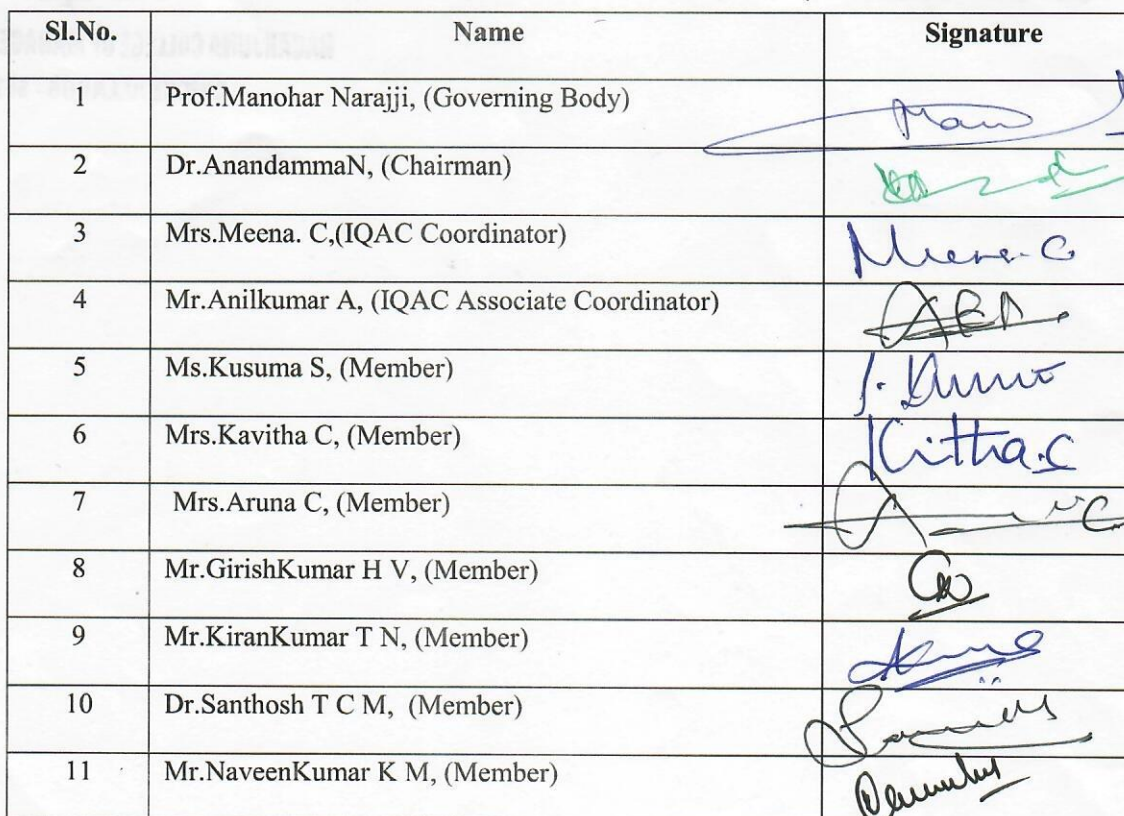 Sl.No. Name Signature
1 Prof.Manohar Narajji, (Governing Body)
2 Dr.AnandammaN, (Chairman)
3 Mrs.Meena. C,(IQAC Coordinator) Meena.C
4 Mr.Anilkumar A, (IQAC Associate Coordinator)
5 Ms.Kusuma S, (Member)
6 Mrs.Kavitha C, (Member)
7 Mrs.Aruna C, (Member)
8 Mr.GirishKumar H V, (Member)
9 Mr.KiranKumar T N, (Member)
10 Dr.Santhosh T C M, (Member)
11 Mr.NaveenKumar K M, (Member)